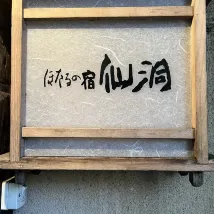 ほたるの宿 仙洞